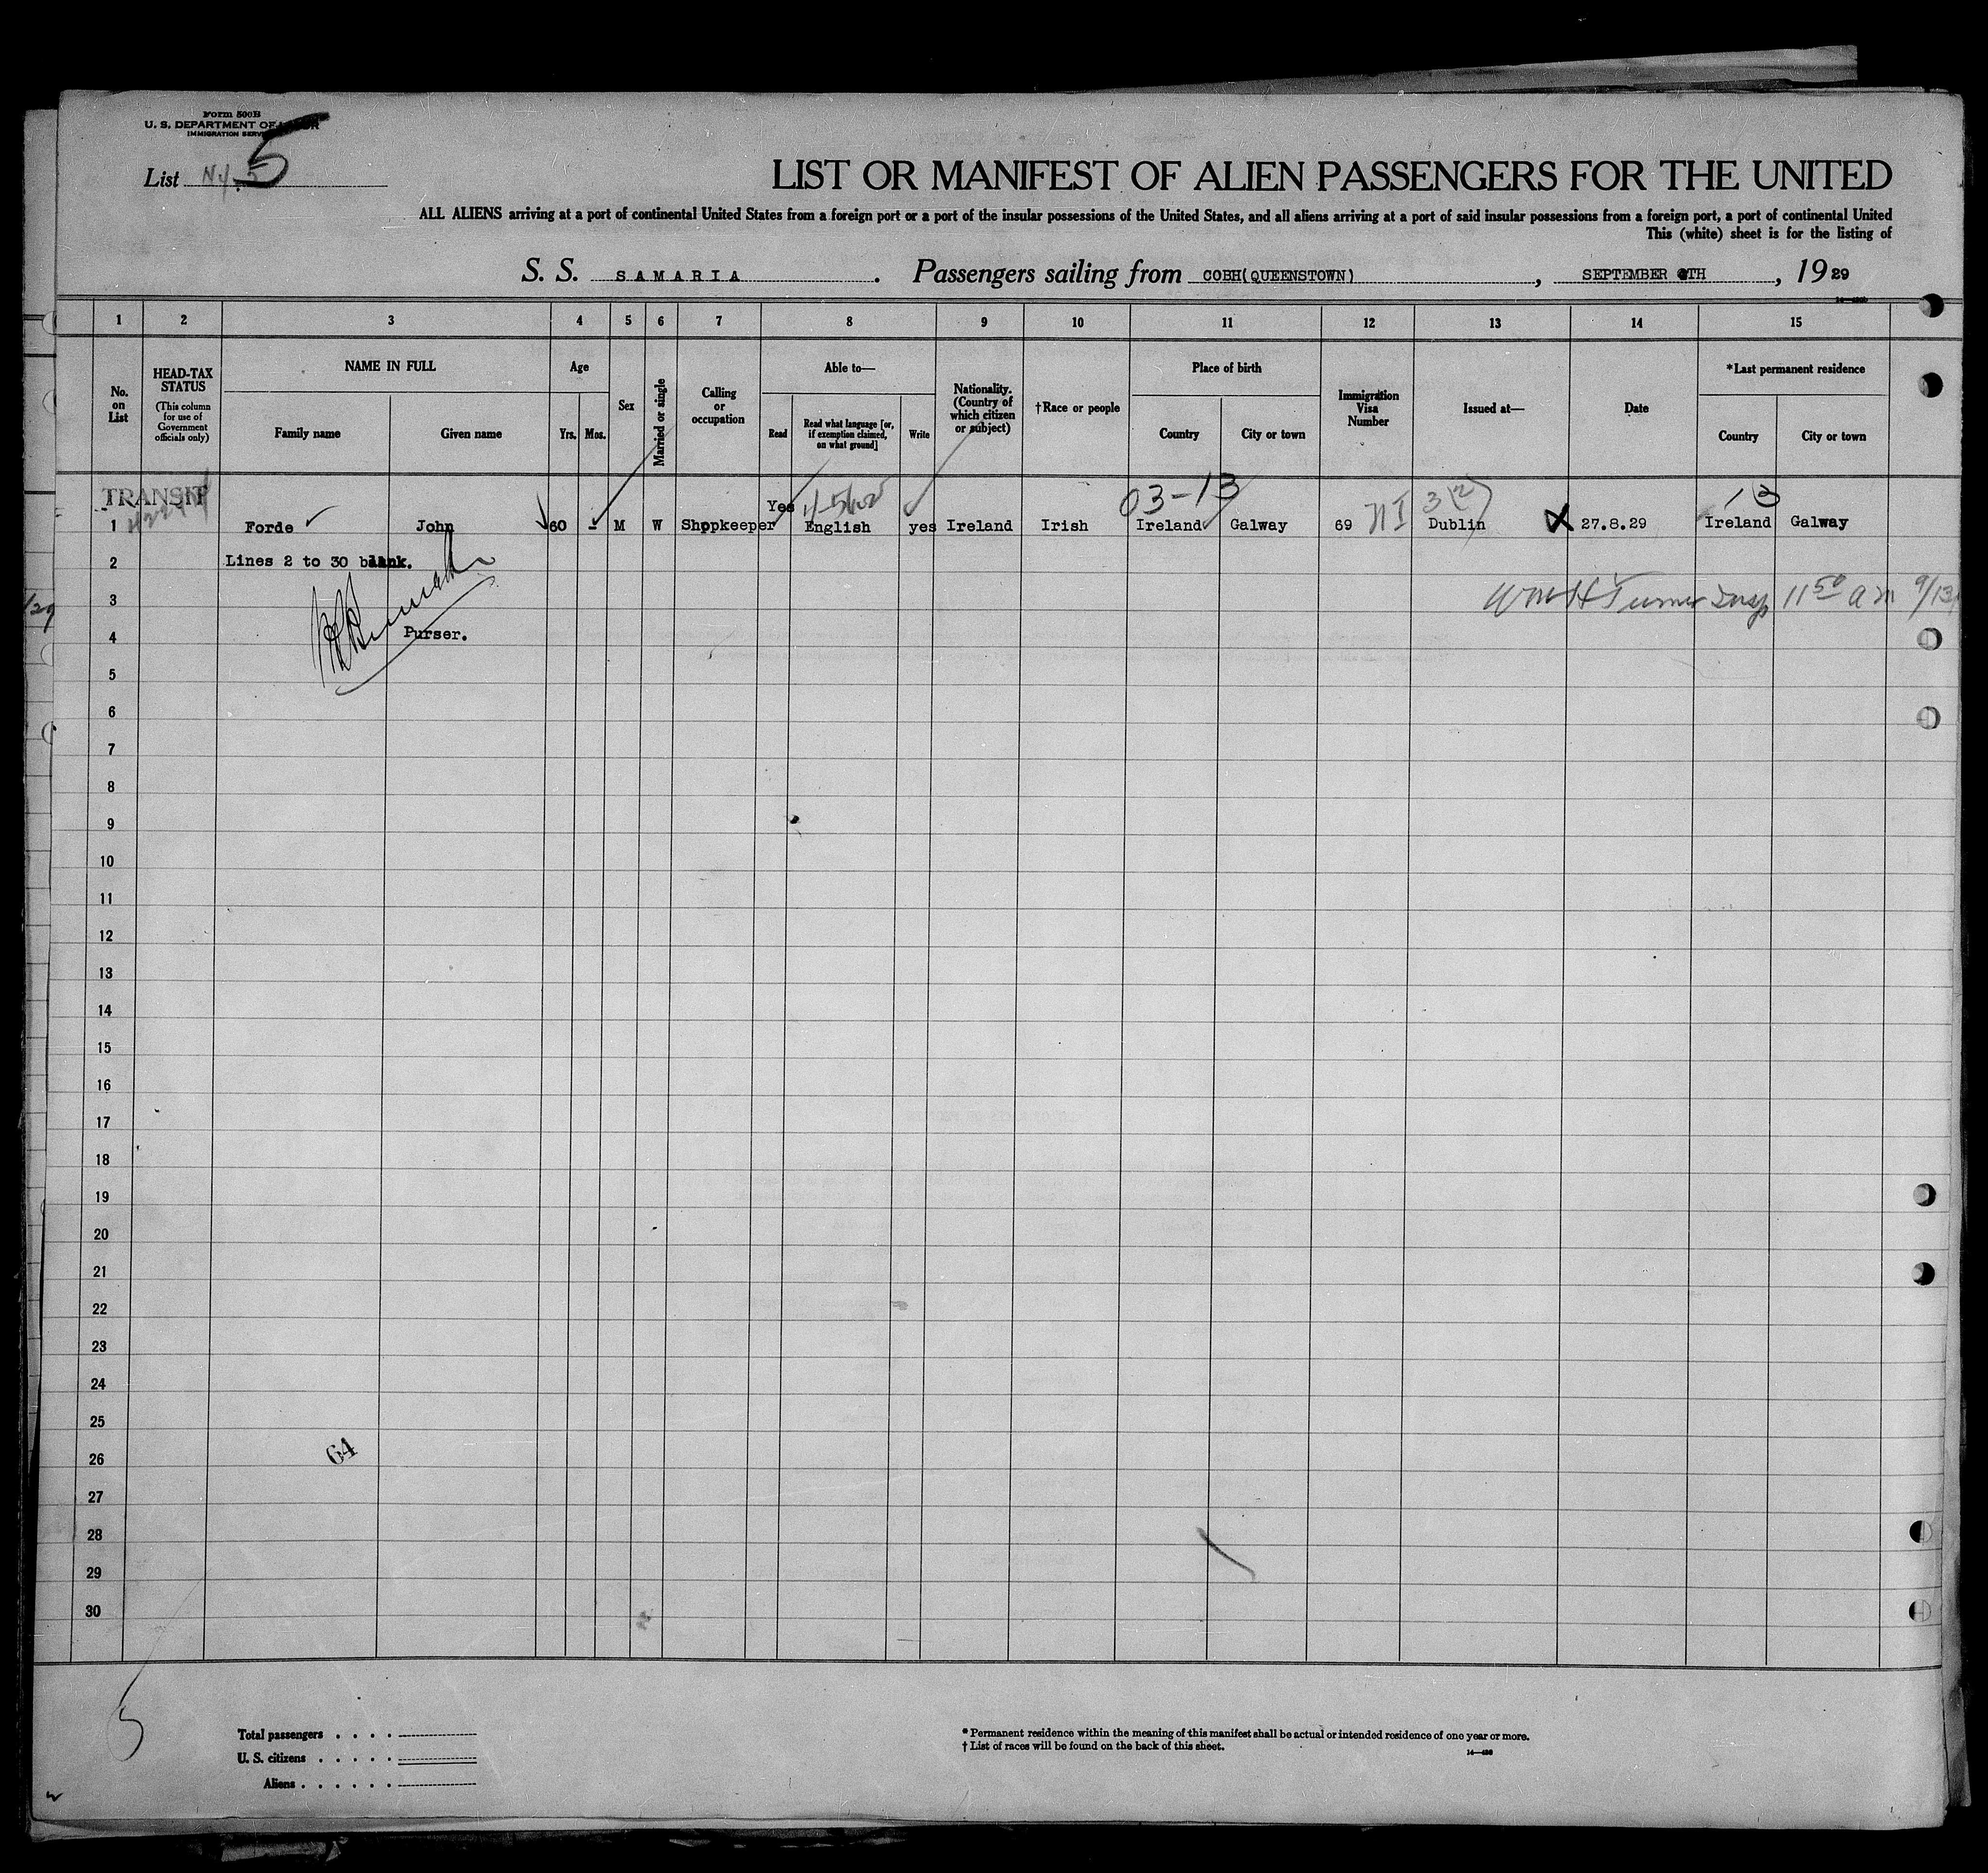 Form 500B
U. S. DEPARTMENT OF LABOR
IMMIGRATION SERVICE
List N.Y. 5
5
LIST OR MANIFEST OF ALIEN PASSENGERS FOR THE UNITED
ALL ALIENS arriving at a port of continental United States from a foreign port or a port of the insular possessions of the United States, and all aliens arriving at a port of said insular possessions from a foreign port, a port of continental United
This (white) sheet is for the listing of
S. S. SAMARIA. Passengers sailing from COBH(QUEENSTOWN), SEPTEMBER TH, 1929
1 2 3 4 5 6 7 8 9 10 11 12 13 14 15
No. on List
HEAD-TAX STATUS
(This column for use of Government officials only)
NAME IN FULL
Family name Given name
Age
Yrs. Mos.
Sex
Married or single
Calling or occupation
Able to—
Read
Read what language [or, if exemption claimed, on what ground]
Write
Nationality. (Country of which citizen or subject)
†Race or people
Place of birth
Country City or town
Immigration Visa Number
Issued at—
Date
*Last permanent residence
Country City or town
TRANSIT
03-13 3(2) 13
1 Forde John 60 - M W Shopkeeper Yes English yes Ireland Irish Ireland Galway 69 Dublin 27.8.29 Ireland Galway
2 Lines 2 to 30 blank.
3 Wm H Turner Insp 11 50 am 9/13
4 Purser.
5
6
7
8
9
10
11
12
13
14
15
16
17
18
19
20
21
22
23
24
25
26
64
27
28
29
30
5
Total passengers . . . .
U. S. citizens . . . . .
Aliens . . . . . .
* Permanent residence within the meaning of this manifest shall be actual or intended residence of one year or more.
† List of races will be found on the back of this sheet.